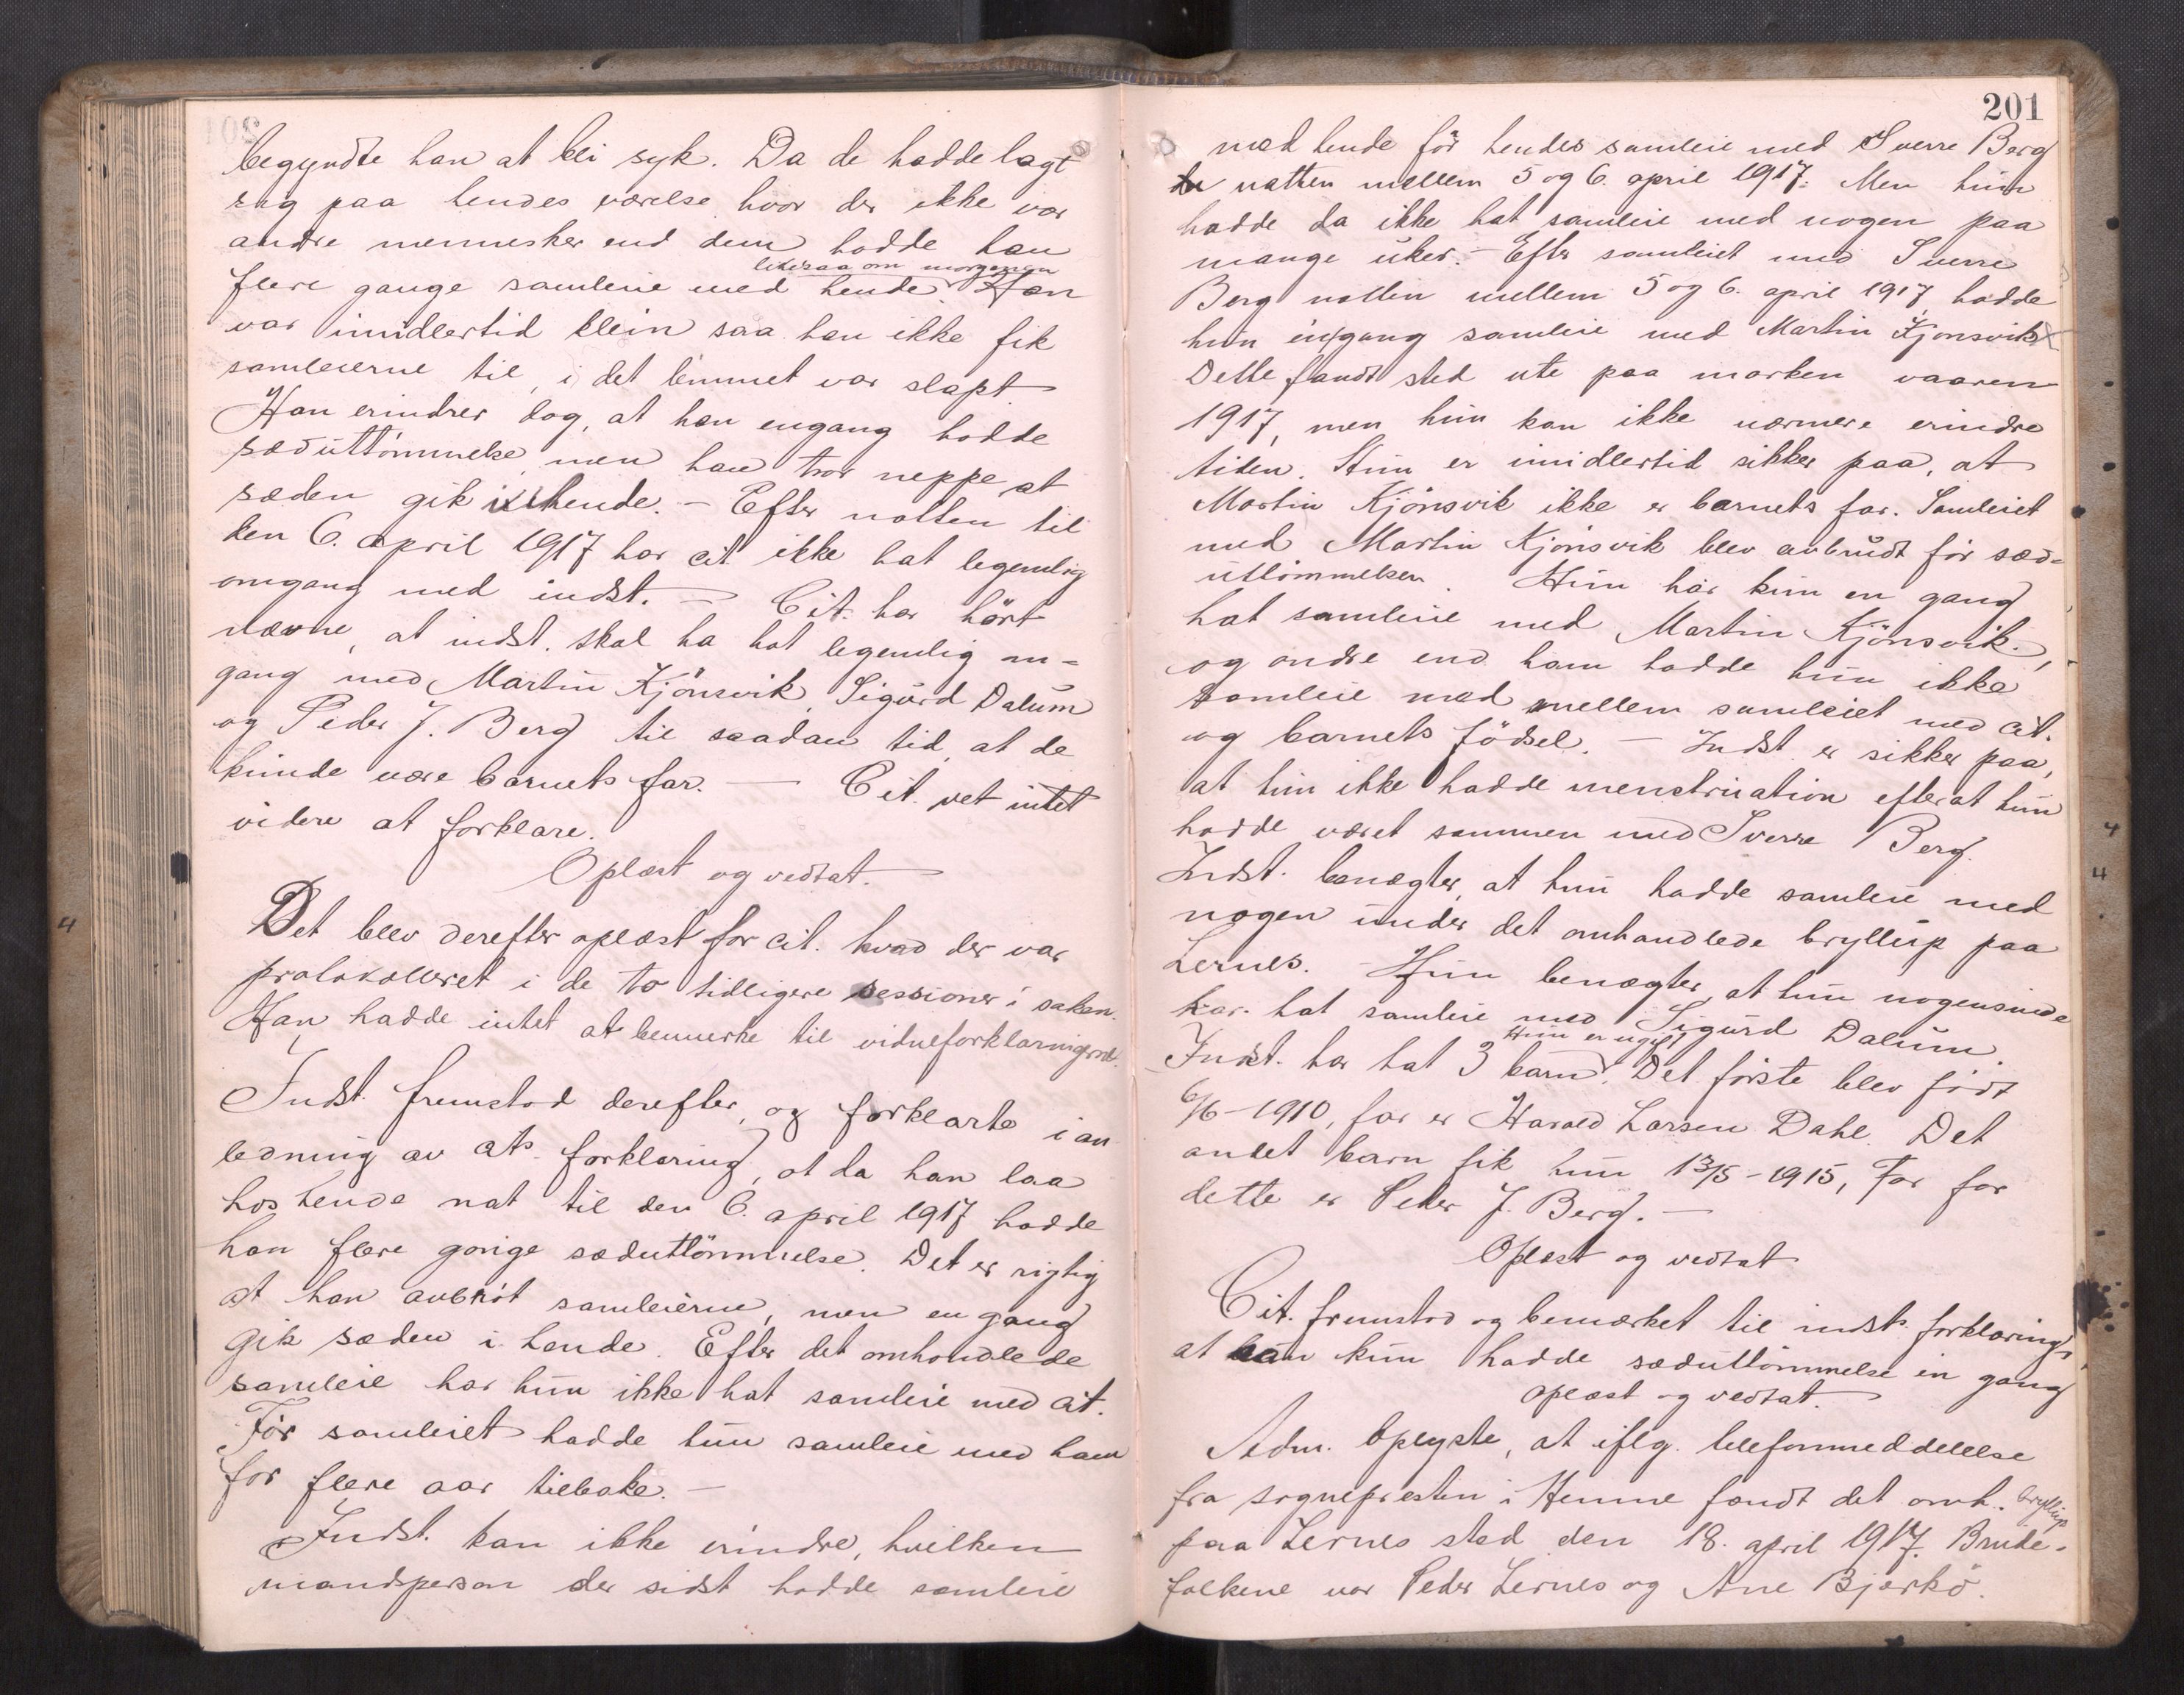 begyndte han at bli syk. Da de hadde lagt
sig paa hendes værelse hvor der ikke var
andre mennesker end dem hadde han
likesaa om morgenen
flere gange samleie med hende. Han
var imidlertid klein saa han ikke fik
samleierne til, i det lemmet var slapt.
Han erindrer dog, at han engang hadde
sæduttömmelse, men han tror neppe at
sæden gik i hende. - Efter natten til
den 6. april 1917 har cit ikke hat legemlig
omgang med indst. - Cit. har hört
nævne, at indst. skal ha hat legemlig om=
gang med Martin Kjönsvik, Sigurd Dalum
og Peder J. Berg til saadan tid at de
kunde være barnets far. - Cit. vet intet
videre at forklare.
Oplæst og vedtat.
Det blev derefter oplæst for cit. hvad der var
protokolleret i de to tidligere sessioner i saken.
Han hadde intet at bemerke til vidneforklaringerne.
Indst. fremstod derefter, og forklarte i an
ledning av cits. forklaring, at da han laa
hos hende nat til den 6. april 1917 hadde
han flere gange sæduttömmelse. Det er rigtig
at han avbröt samleierne, men en gang
gik sæden i hende. Efter det omhandlede
samleie har hun ikke hat samleie med cit.
För samleiet hadde hun samleie med ham
for flere aar tilbake. -
Indst. kan ikke erindre, hvilken
mandsperson der sidst hadde samleie
201
med hende för hendes samleie med Sverre Berg
natten mellem 5 og 6. april 1917. Men hun
hadde da ikke hat samleie med nogen paa
mange uker. - Efter samleiet med Sverre
Berg natten mellem 5 og 6. april 1917 hadde
hun engang samleie med Martin Kjönsvik
Dette fandt sted ute paa marken vaaren
1917, men hun kan ikke nærmere erindre
tiden. Hun er imidlertid sikker paa, at
Martin Kjönsvik ikke er barnets far. Samleiet
med Martin Kjönsvik blev avbrudt för sæd=
uttömmelsen. Hun har kun en gang
hat samleie med Martin Kjönsvik,
og andre end ham hadde hun ikke
samleie med mellem samleiet med cit.
og barnets födsel. - Indst er sikker paa,
at hun ikke hadde menstruation efterat hun
hadde været sammen med Sverre Berg.
Indst. benægter, at hun hadde samleie med
nogen under det omhandlede bryllup paa
Lernes. - Hun benægter, at hun nogensinde
har hat samleie med Sigurd Dalum.
Hun er ugift
Indst. har hat 3 barn. Det förste blev född
6/6-1910, far er Harald Larsen Dahl. Det
andet barn fik hun 13/5-1915, Far for
dette er Peder J. Berg. -
Oplæst og vedtat
Cit. fremstod og bemærket til indsts forklaring,
at han kun hadde sæduttömmelse en gang
oplæst og vedtat.
Adm. oplyste, at iflg. telefonmeddelelse
fra sogneprestin i Hemne fandt det omh. bryllup
paa Lernes sted den 18. april 1917. Brude=
folkene var Peder Lernes og Ane Bjerkö.